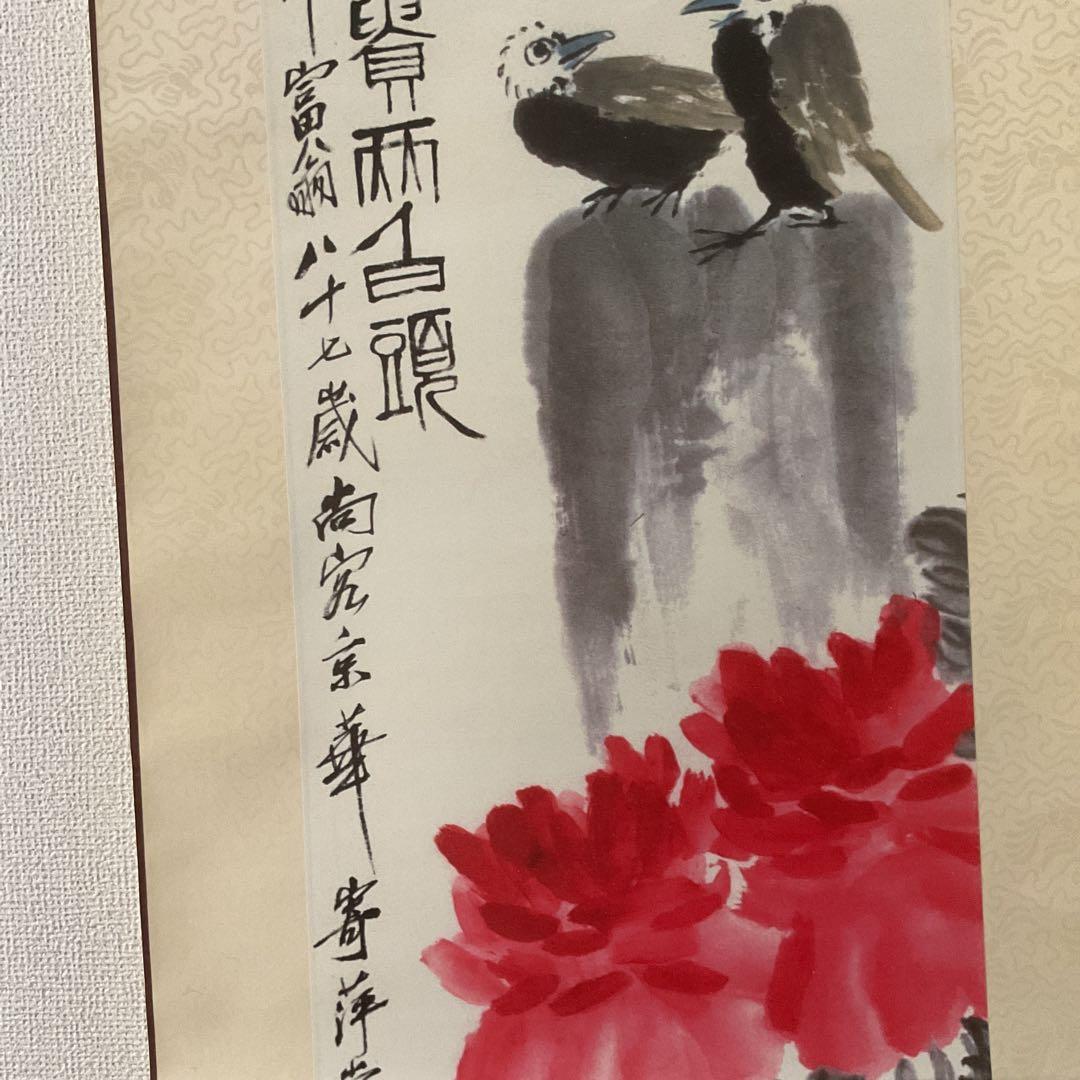 貴兩白頭
富翁八十七歲尚客京華寄萍